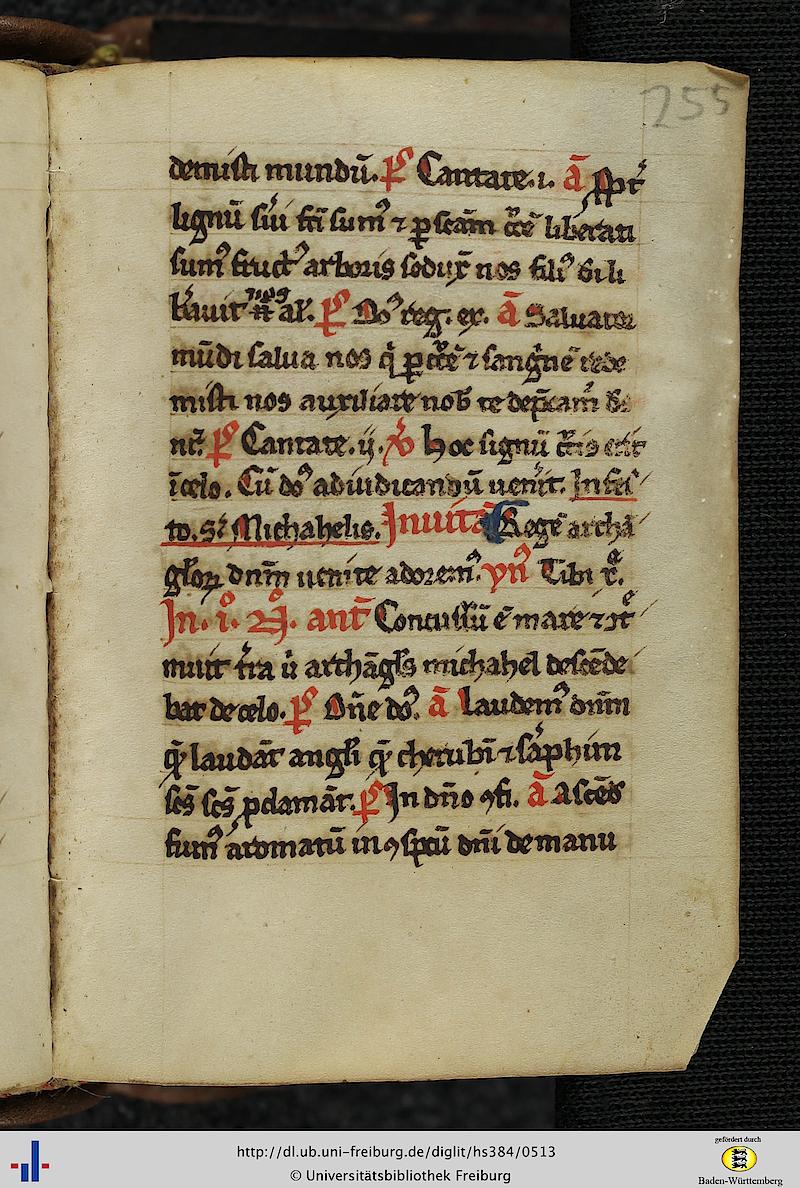 255
demisti mundū. p̄s Cantate. i. ā Ppt̄
lignū s̄ui fc̄i sumꝰ ⁊ ꝑ sc̄am c̄cē liberati
sumꝰ fructꝰ arboris sedux̄ nos filiꝰ
nos
al̄. p̄s Dn̄s reg. ex. ā Saluator
mūdi salua nos q̄ ꝑ c̄cē ⁊ sanḡnē rede
misti nos auxiliare nob̄ te dep̄cam̄
p̄s Cantate. ij. v̄ Hoc signū c̄cis erit
ī celo. Cū dn̄s ad iudicandū uen̄it. In fes
to. S. Michahelis. Inuitā Regē archā
gl̄oꝝ dn̄m uenite adoremꝰ. ymꝰ Tibi x̄.
In. i. n̊. ant̄ Concussū ē mare ⁊
muit t̄ra u̇ archāgl̄s michahel descēde
bat de celo. p̄s Dn̄e dn̄s. ā Laudemꝰ dn̄m
q̄ laudāt angl̄i q̄ cherubī ⁊ s̄aphim
sc̄s sc̄s ꝓclamāt. p̄s In dn̄o ꝯfi. ā Ascēd
fumꝰ aromatū in ꝯspc̄tū dn̄i de manu
http://dl.ub.uni-freiburg.de/diglit/hs384/0513
© Universitätsbibliothek Freiburg
gefördert durch
Baden-Württemberg